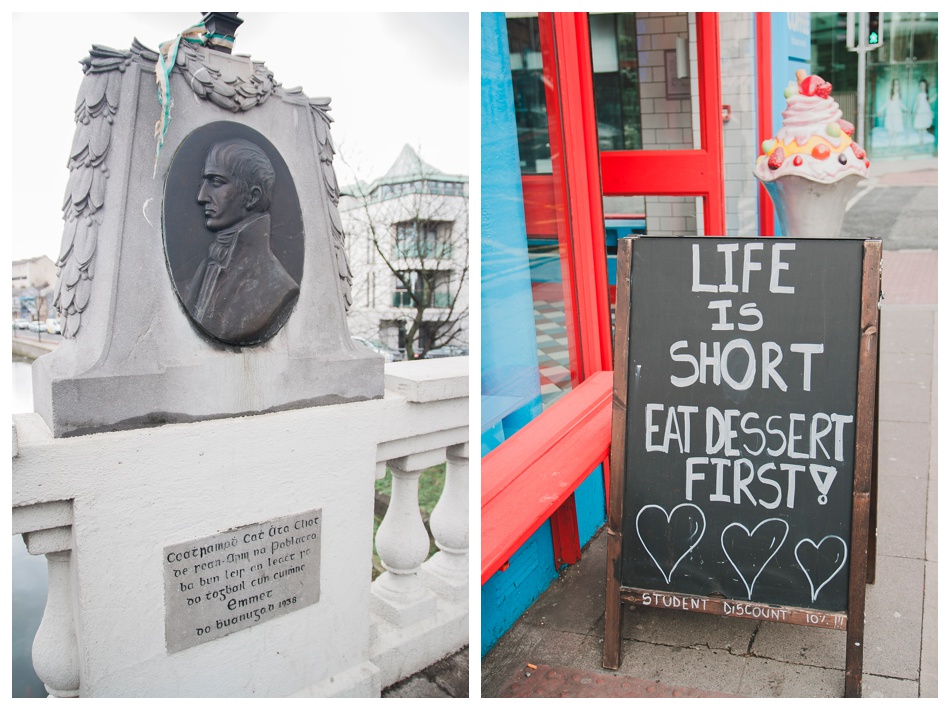 Ceaṫramhḋ Caṫ Áṫa Cliaṫ
de sean-Arm na Poblaċta
ba bun leis an leaċt so
do tógḃáil ċun cuimne
Emmet
do ḃuanuġaḋ 1938
LIFE
IS
SHORT
EAT DESSERT
FIRST!
STUDENT DISCOUNT 10%